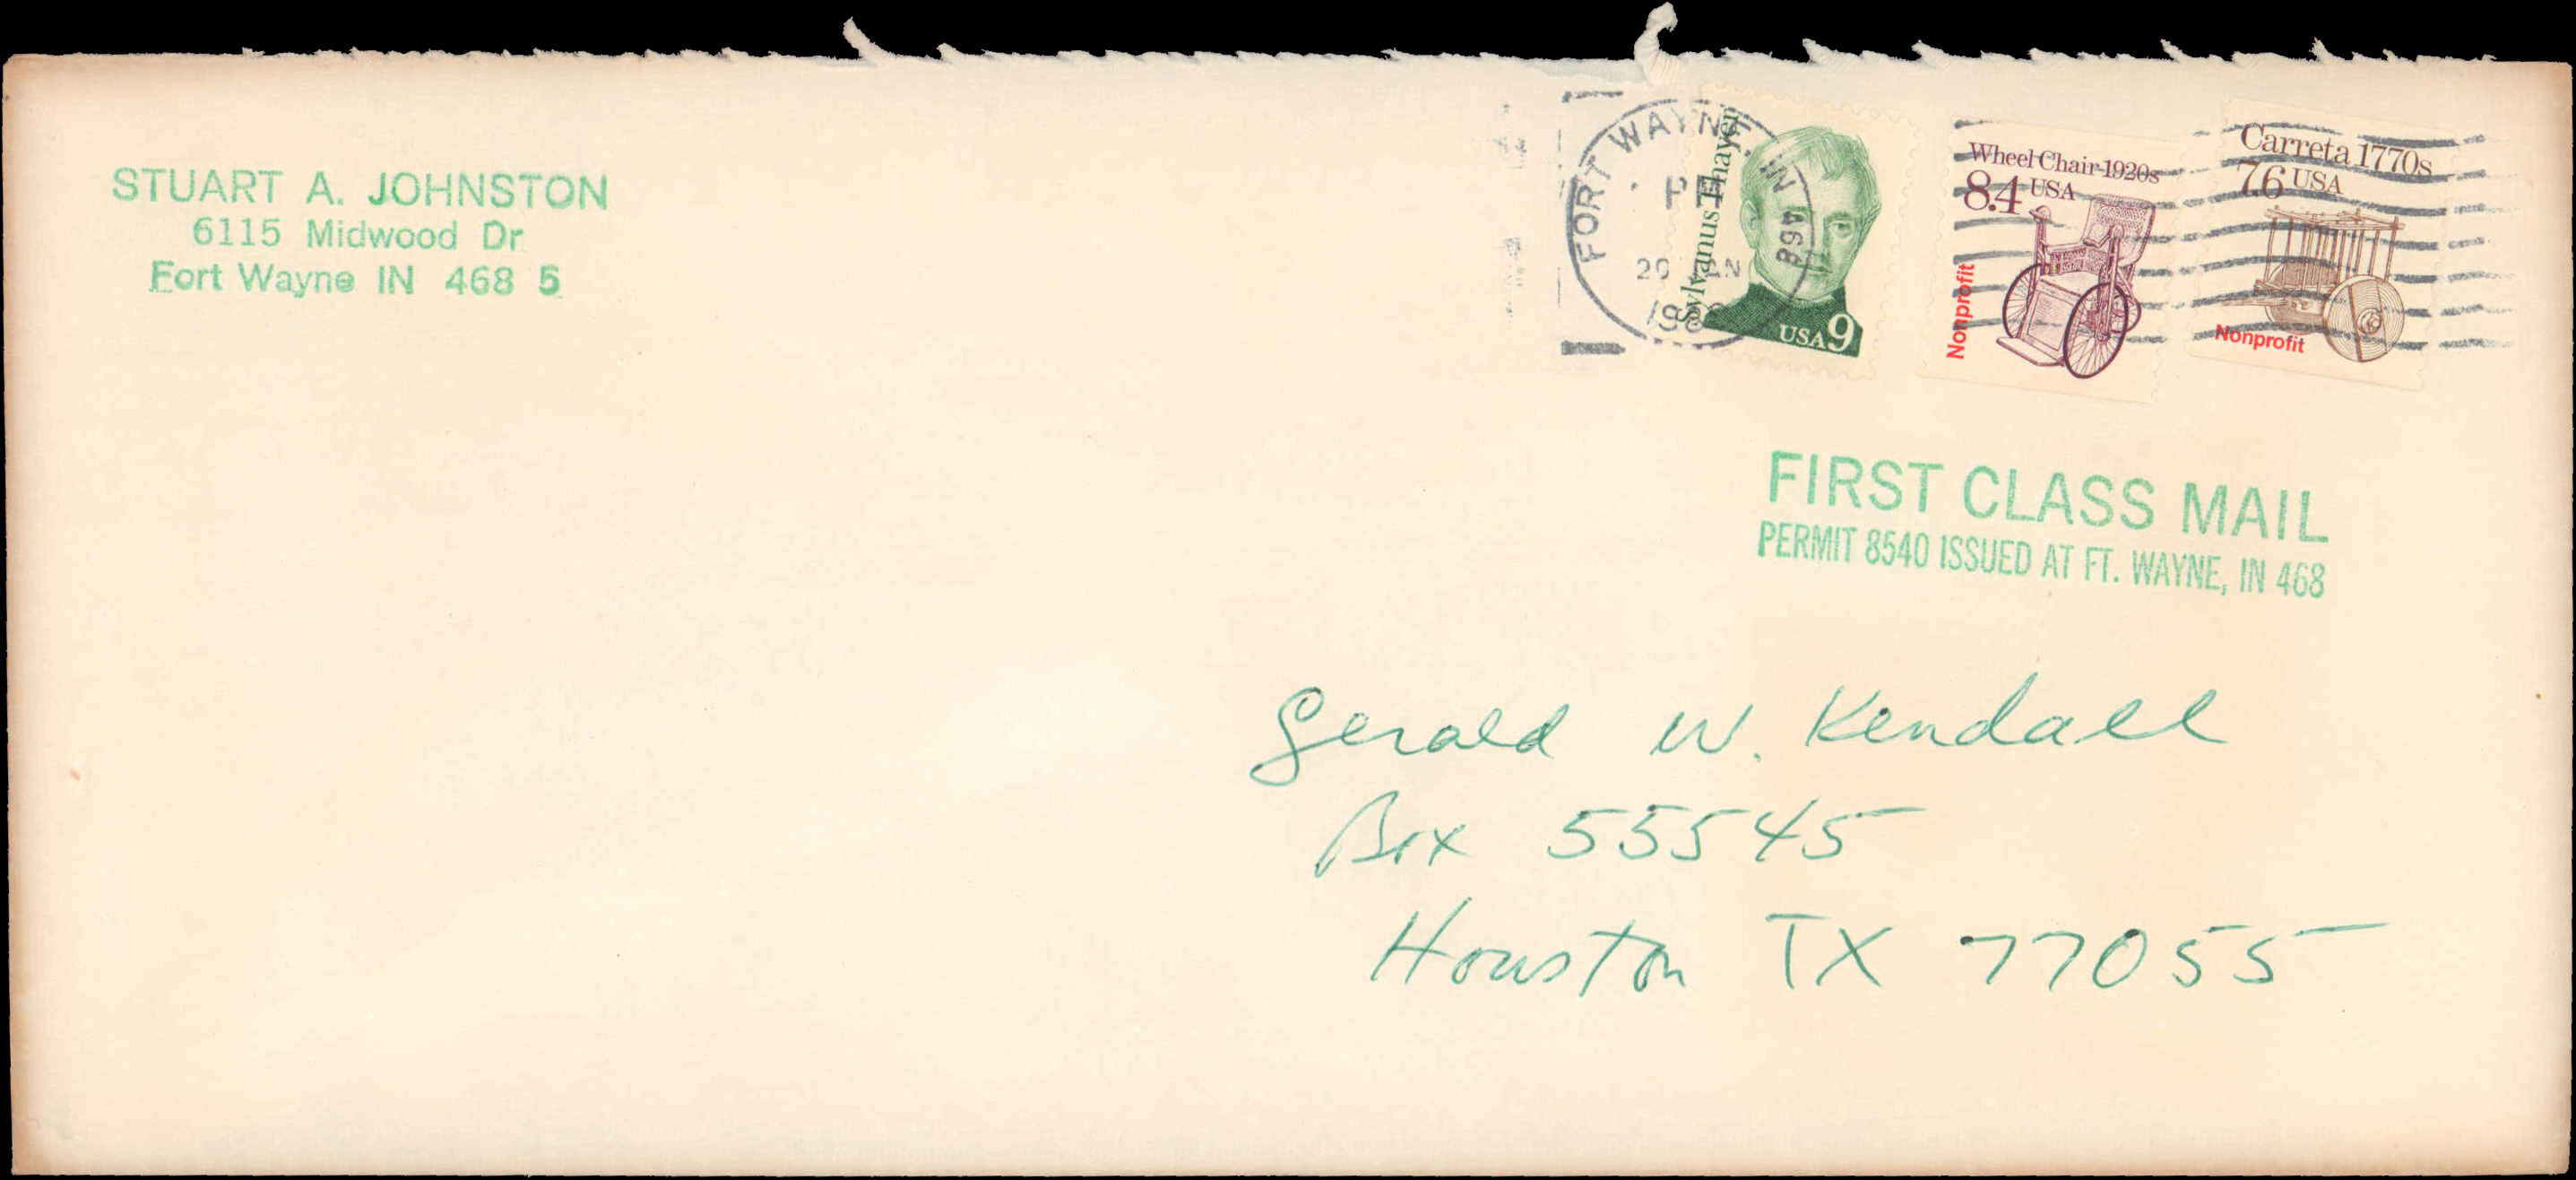 STUART A. JOHNSTON
6115 Midwood Dr
Fort Wayne IN 468 5
FORT WAYNE, IN
468
Sylvanus Thayer
USA 9
Wheel Chair 1920s
8.4 USA
Nonprofit
Carreta 1770s
7.6 USA
Nonprofit
FIRST CLASS MAIL
PERMIT 8540 ISSUED AT FT. WAYNE, IN 468
Gerald W. Kendall
Box 55545
Houston TX 77055